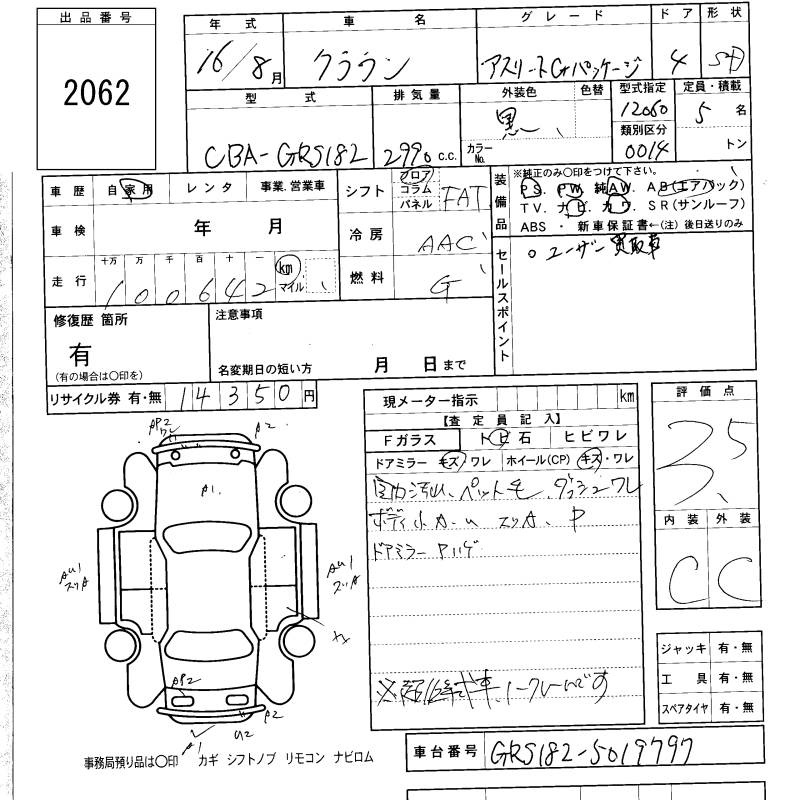 出品番号
2062
年式 車名 グレード ドア 形状
16/8月 クラウン アスリートGパッケージ 4 SD
型式 排気量 外装色 色替 型式指定 定員・積載
CBA-GRS182 2990 c.c. 黒 カラーNo. 12060 5 名
類別区分
0014 トン
車歴 自家用 レンタ 事業.営業車
シフト フロア コラム パネル FAT
装備品 ※純正のみ〇印をつけて下さい。
PS. PW. 純AW. AB(エアバック)
TV. ナビ. カワ. SR(サンルーフ)
ABS ・ 新車保証書←(注) 後日送りのみ
車検 年 月
冷房 AAC
走行 十万 万 千 百 十 一
100642 km マイル
燃料 G
セールスポイント
○ユーザー買取車
修復歴 箇所
有
(有の場合は〇印を)
注意事項
名変期日の短い方 月 日まで
リサイクル券 有・無 14350円
現メーター指示 km
【査定員記入】
Fガラス トビ石 ヒビワレ
ドアミラー キズ/ワレ ホイール(CP) キズ・ワレ
ペット毛
ボディ小A.u スリA. P
ドアミラー Pハゲ
評価点
3.5
内装 外装
C C
AP2
ワレ
A2
A1.
AU1
スリA
AU1
スリA
AP2
A2
U2
A1
ジャッキ 有・無
工具 有・無
スペアタイヤ 有・無
事務局預り品は〇印 カギ シフトノブ リモコン ナビロム
車台番号 GRS182-5019797